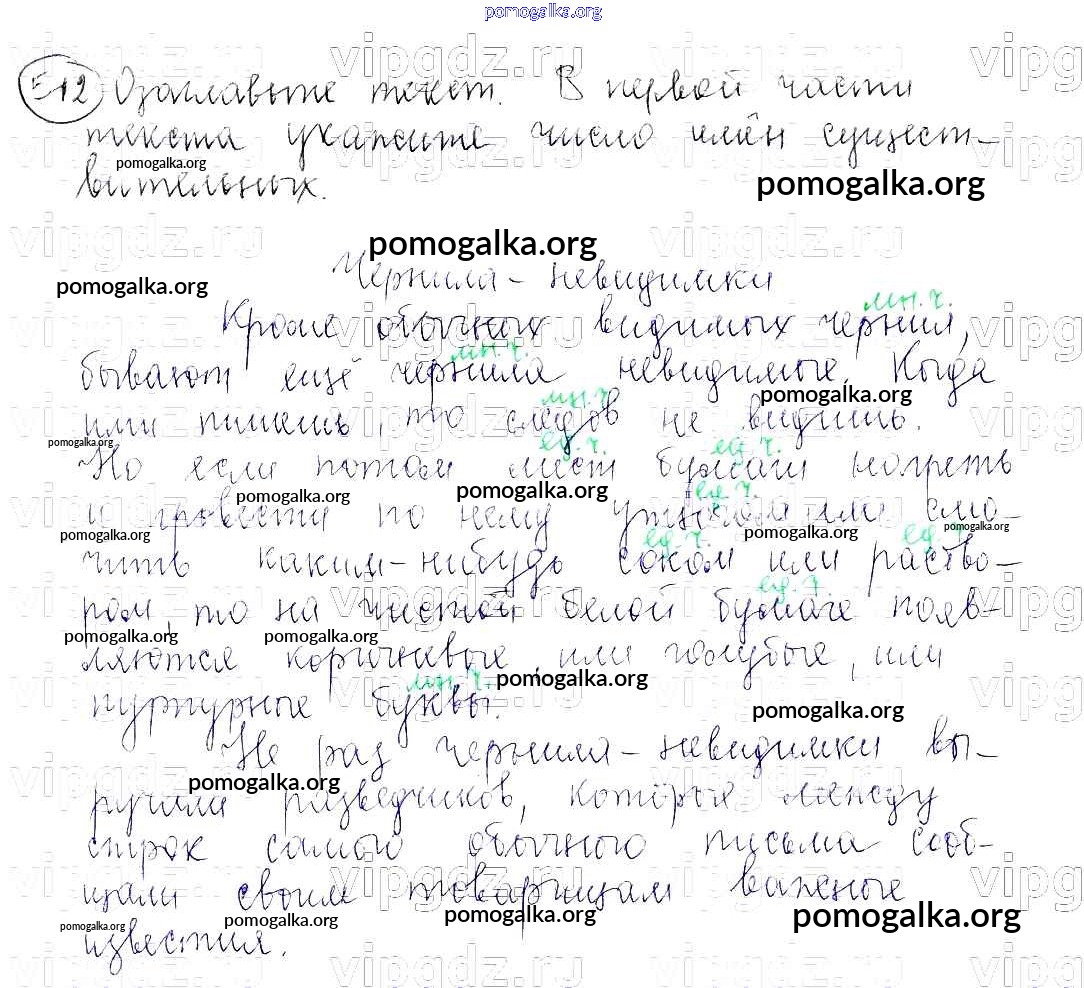 pomogalka.org
512 Озаглавьте текст. В первой части
текста укажите число имён сущест-
вительных.
Чернила-невидимки
мн.ч.
Кроме обычных видимых чернил,
мн.ч.
бывают ещё чернила невидимые. Когда
мн.ч.
ими пишешь, то следов не видишь.
ед.ч. ед.ч.
Но если потом лист бумаги нагреть
ед.ч.
и провести по нему утюгом или смо-
ед.ч. ед.ч.
чить каким-нибудь соком или раство-
ед.ч.
ром, то на чистой белой бумаге появ-
ляются коричневые, или голубые, или
мн.ч.
пурпурные буквы.
Не раз чернила-невидимки вы-
ручали разведчиков, которые между
строк самого обычного письма сооб-
щали своим товарищам важные
известия.
pomogalka.org
vipgdz.ru